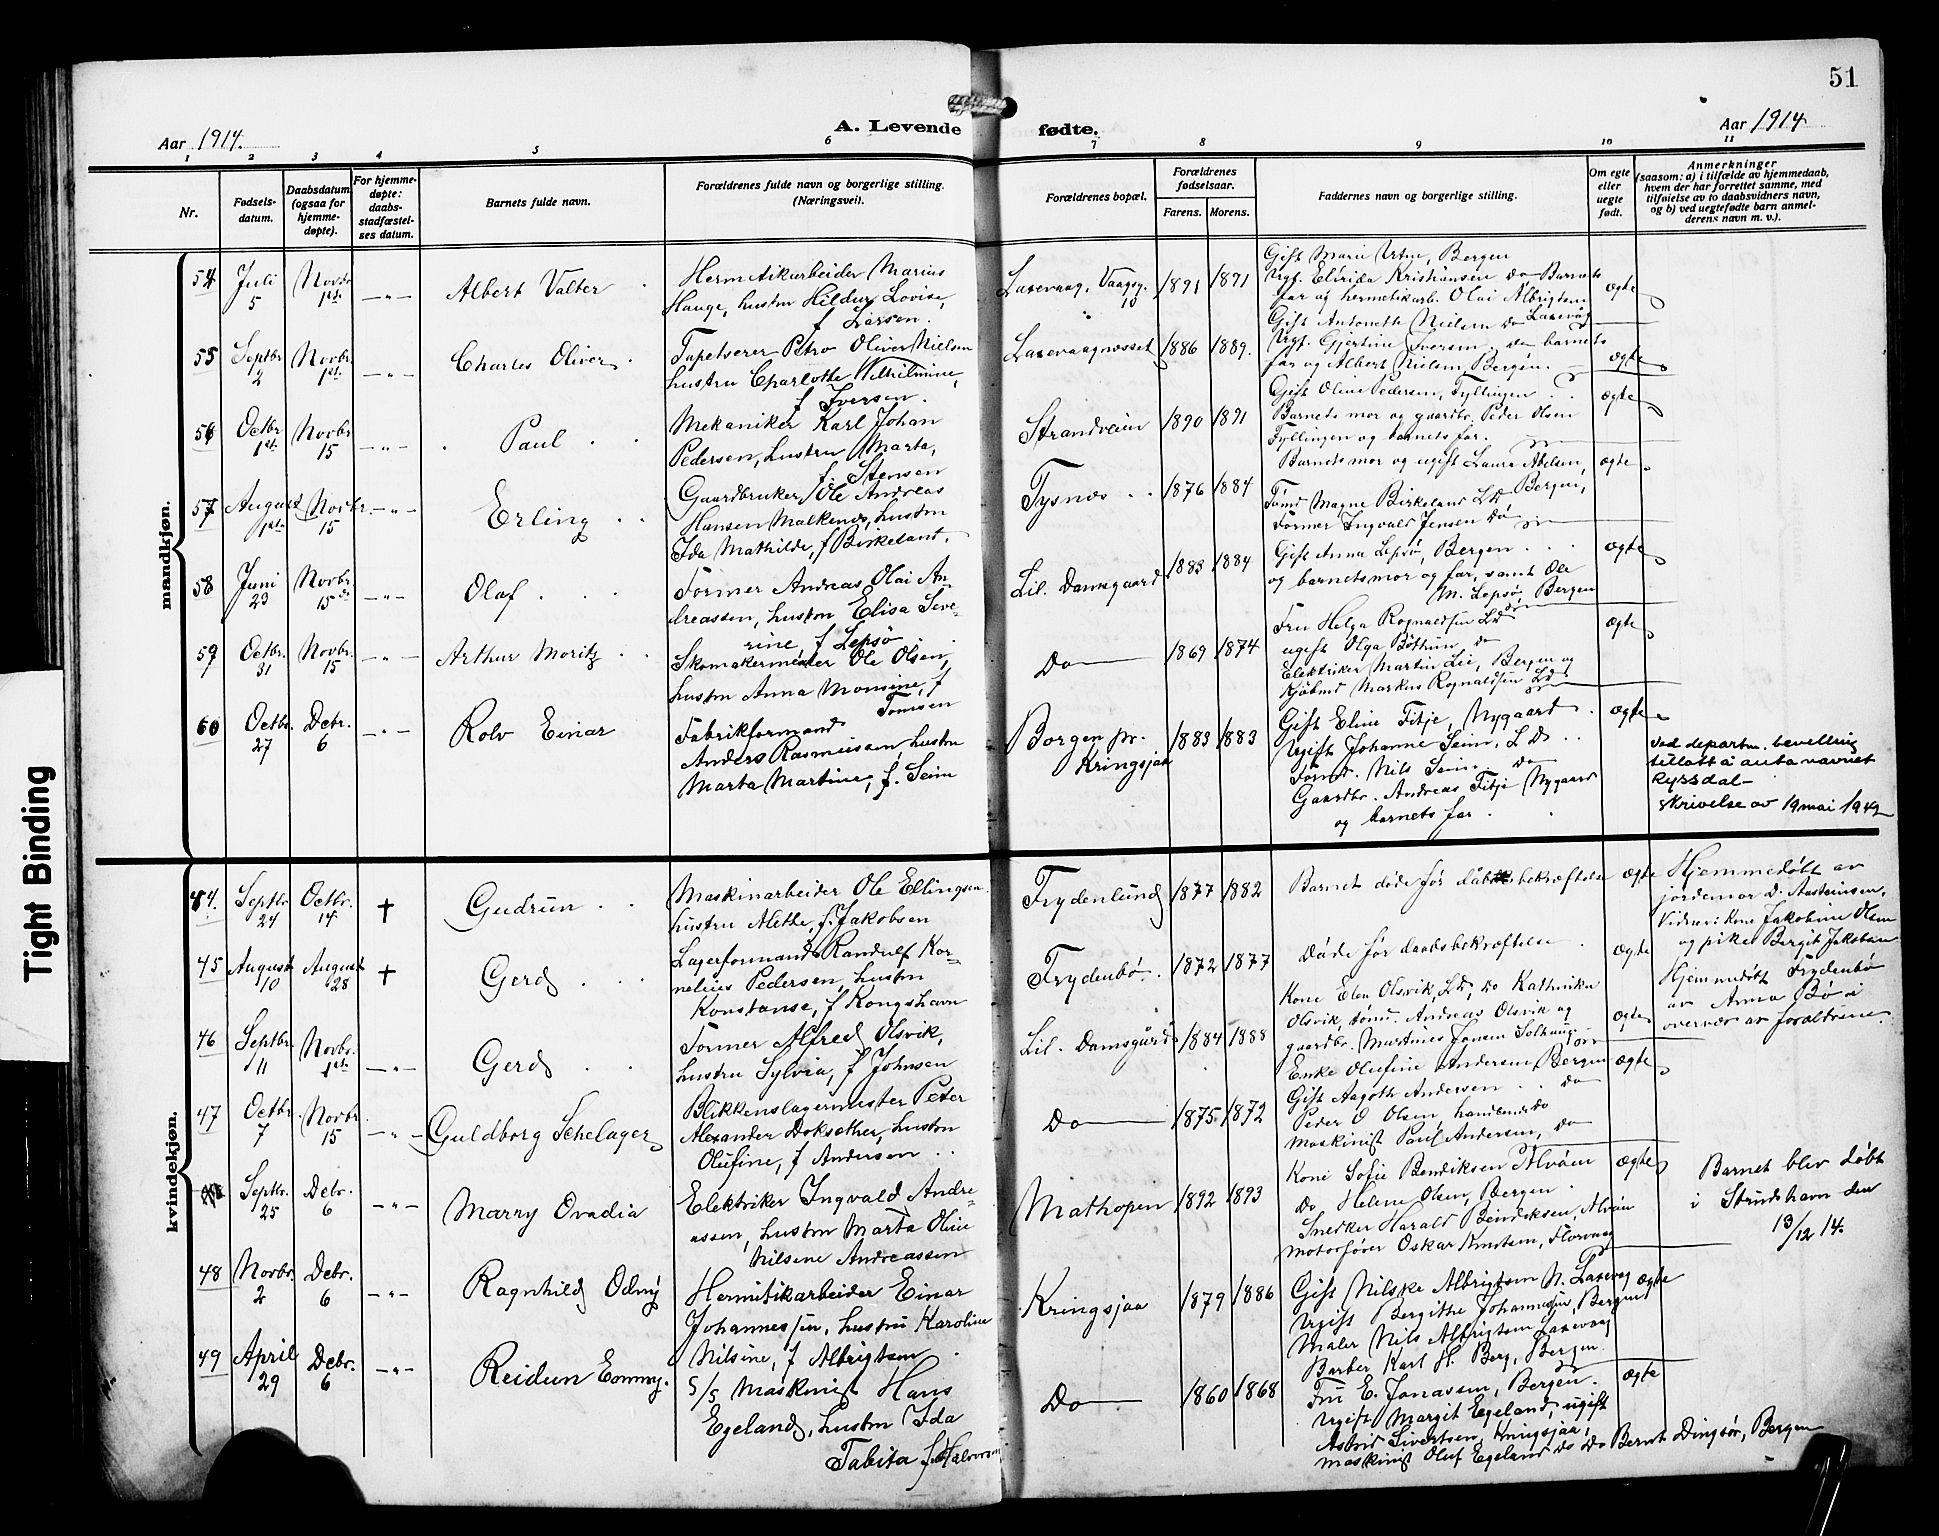 51
A. Levende fødte.
Aar 1914.
Aar 1914
1 2 3 4 5 6 7 8 9 10 11
Nr.
Fødsels-
datum.
Daabsdatum
(ogsaa for
hjemme-
døpte).
For hjemme-
døpte:
daabs-
stadfæstel-
ses datum.
Barnets fulde navn.
Forældrenes fulde navn og borgerlige stilling.
(Næringsvei).
Forældrenes bopæl.
Forældrenes
fødselsaar.
Farens. Morens.
Faddernes navn og borgerlige stilling.
Om egte
eller
uegte
født.
Anmerkninger
(saasom: a) i tilfælde av hjemmedaab,
hvem der har forrettet samme, med
tilføielse av to daabsvidners navn,
og b) ved uegtefødte barn anmel-
derens navn m. v.).
mandkjøn.
54 Juli 5 Novbr 1st. —"— Albert Valter
Hermetikarbeider Marius
Hauge, hustru Hildur Lovise,
f Larsen.
Laxevaag, Vaagsg. 10 1891 1891
Gift Marie Urtne, Bergen
Ugt. Elirida Kristiansen do Barnets
far og hermetikarb. Olai Albrigtsen
Laxevåg
ægte
55 Septbr 2 Novbr. 1st. —"— Charles Oliver
Tapetserer Petro Oliver Nielsen
hustru Charlotte Wilhelmine,
f Iversen.
Laxevaagnesset 1886 1889.
Gift Antonette Nielsen do
Ugt. Gjertine Iversen do barnets
far og Albert Nielsen, Bergen.
ægte
56 Octbr 1st. Novbr 15 —"— Paul
Mekaniker Karl Johan
Pedersen, hustru Marta,
f. Stensen
Strandveien 1890 1891
Gift Oline Pedersen, Fyllingen
Barnets mor og gaardbr. Peder Olsen
Fyllingen og barnets far.
ægte
57 August 1st. Novbr. 15 —"— Erling
Gaardbruker Ole Andreas
Hansen Malkenes, hustru
Ida Mathilde, f Birkeland.
Tysnes 1876 1884
Barnets mor og ugift Laura Abelsen,
Bergen,
Tømd Magne Birkeland Ld
Former Ingvald Jensen do
ægte
58 Juni 23 Novbr. 15 —"— Olaf
Former Andreas Olai An-
dreassen, hustru Elisa Seve-
rine, f. Lepsø
Lil. Damsgaard 1883 1884
Gift Anna Lepsø, Bergen
og barnets mor og far, samt Ole
M. Lepsø, Bergen
ægte
59 Octbr. 31 Novbr. 15 —"— Arthur Moritz
Skomakermester Ole Olsen,
hustru Anna Monsine, f
Tomsen
Do 1869 1874
Fru Helga Rognaldsen Ld
ugift Olga Bøthun do
Elektriker Martin Lie, Bergen og
Kjøbmd Markus Rognaldsen Ld
ægte
60 Octbr. 27 Debr. 6 —"— Rolv Einar
Fabrikformand
Anders Rasmussen, hustru
Marta Martine, f. Seim
Borgen pr. Kringsjaa 1883 1883
Gift Eline Fitje, Nygaard
Ugift Johanne Seim, Ld
Tømd. Nils Seim. do
Gaardbr. Andreas Fitje Nygaard
og barnets far
ægte
Ved departm. bevilling
tillatt å anta navnet
Ryssdal
skrivelse av 19 mai 1942
kvindekjøn.
44. Septbr. 24 Octbr. 14 † Gudrun
Maskinarbeider Ole Ellingsen.
hustru Alethe, f. Jakobsen
Frydenlund 1877 1882
Barnet døde før dåbsbekræftelse
ægte
Hjemmedøbt av
jordemor D. Austeinsen.
Vidner: Kone Jakobine Olsen
og pike Bergit Jakobsen
45 August 10 August 28 † Gerd
Lagerformand Randulf Kor-
nelius Pedersen, hustru
Konstanse, f Kongshavn
Frydenbø. 1872 1877
Døde før daabsbekræftelse
ægte
Hjemmedøbt Frydenbø
av Anna Bø i
overvær av foreldrene.
46 Septbr. 11 Novbr. 1st. —"— Gerd
Former Alfred Olsvik,
hustru Sylvia, f Johnsen
Lil. Damsgård 1884 1888
Kone Elen Olsvik, Ld, do Kathinka
Olsvik, tømd. Andreas Olsvik og
gaardbr. Martines Jansen Solhaug
ægte
47 Octbr 7 Novbr. 15 —"— Guldborg Schelager
Blikkenslagermester Peter
Alexander Doksæther, hustru
Olufine, f Andersen
Do 1875 1872
Enke Olufine Andersen Bergen
Gift Aagoth Andersen do
Peder O Olsen, handelsmd do
maskinist Paul Andersen, do
ægte
Septbr. 25 Debr. 6 —"— Marry Ovadia
Elektriker Ingvald Andre-
assen, hustru Marta Oline
Nilsine Andreassen
Mathopen 1892 1893
Kone Sofie Bendiksen Alvøen
Do Helene Olsen, Bergen
Snedker Harald Bendiksen, Alvøen
motorfører Oskar Knutsen, Florvaag
ægte
Barnet blev døbt
i Strudshavn den
13/12 14.
48 Novbr. 2 Debr. 6 —"— Ragnhild Odny
Hermitikarbeider Einar
Johannessen, hustru Karoline
Nilsine, f Albrigtsen
Kringsjaa 1879 1886
Gift Nilske Albrigtsen N. Laxevåg
Ugift Bergithe Johannesen, Bergen
Maler Nils Albrigtsen Laxevaag
Barber Karl H. Berg, Bergen
ægte
49 April 29 Debr. 6 —"— Reidun Emmy.
S/S Maskinist Hans
Egeland, hustru Ida
Tabita f Halvorsen
Do 1860 1868
Fru E. Jonassen, Bergen.
Ugift Margit Egeland, ugift
Astrid Sivertsen, Kringsjaa,
maskinist Oluf Egeland do Do Bernt Dingsør, Bergen
ægte
Tight Binding